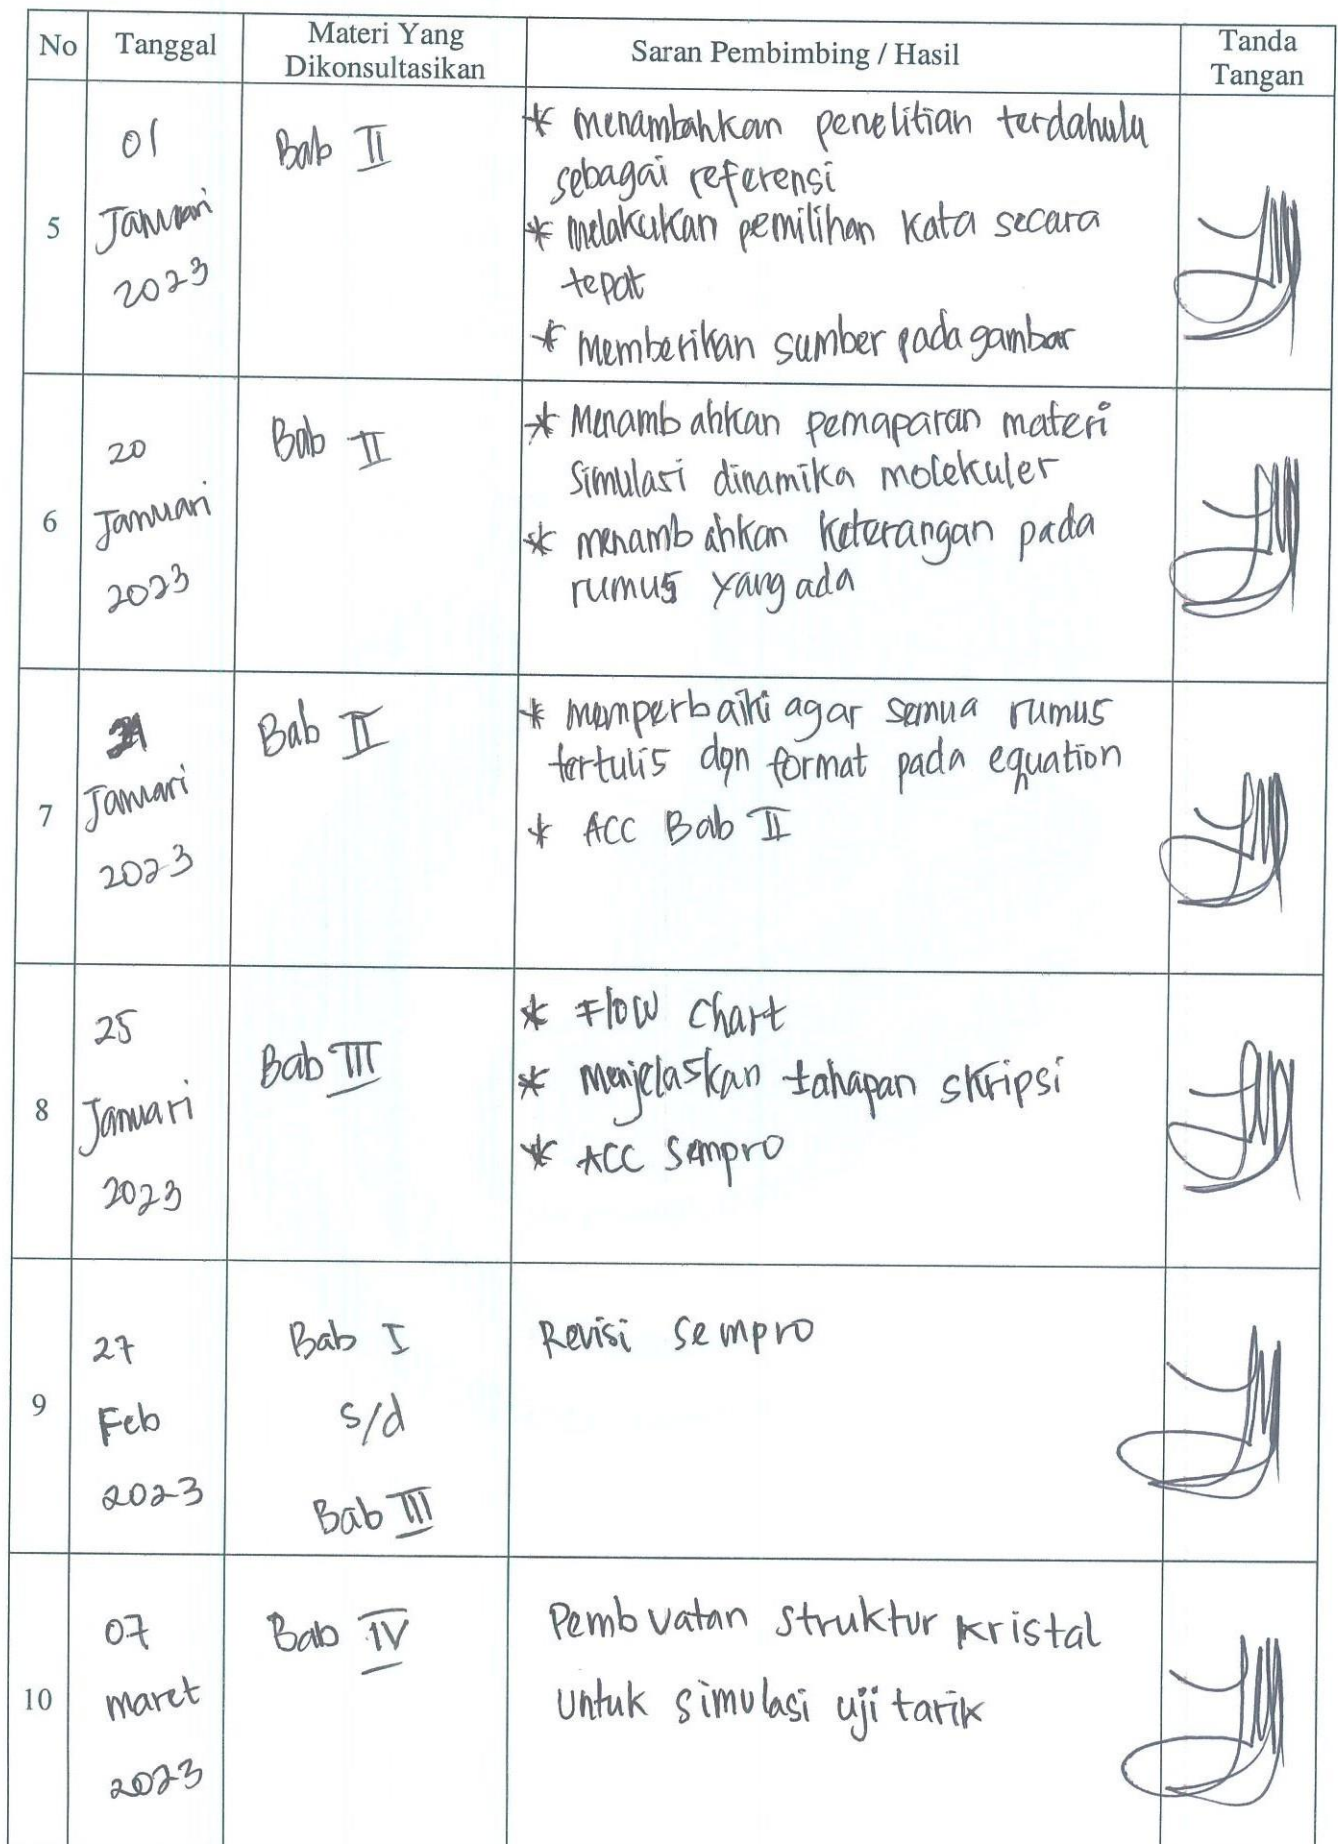 No Tanggal Materi Yang Dikonsultasikan Saran Pembimbing / Hasil Tanda Tangan
5
01
Januari
2023
Bab II
* menambahkan penelitian terdahulu
sebagai referensi
* melakukan pemilihan kata secara
tepat
* memberikan sumber pada gambar
6
20
Januari
2023
Bab II
* Menambahkan pemaparan materi
simulasi dinamika molekuler
* menambahkan keterangan pada
rumus yang ada
7
Januari
2023
Bab II
* memperbaiki agar semua rumus
tertulis dgn format pada equation
* ACC Bab II
8
25
Januari
2023
Bab III
* Flow Chart
* Menjelaskan tahapan skripsi
* ACC Sempro
9
27
Feb
2023
Bab I
s/d
Bab III
Revisi Sempro
10
07
maret
2023
Bab IV
Pembuatan struktur kristal
untuk simulasi uji tarik